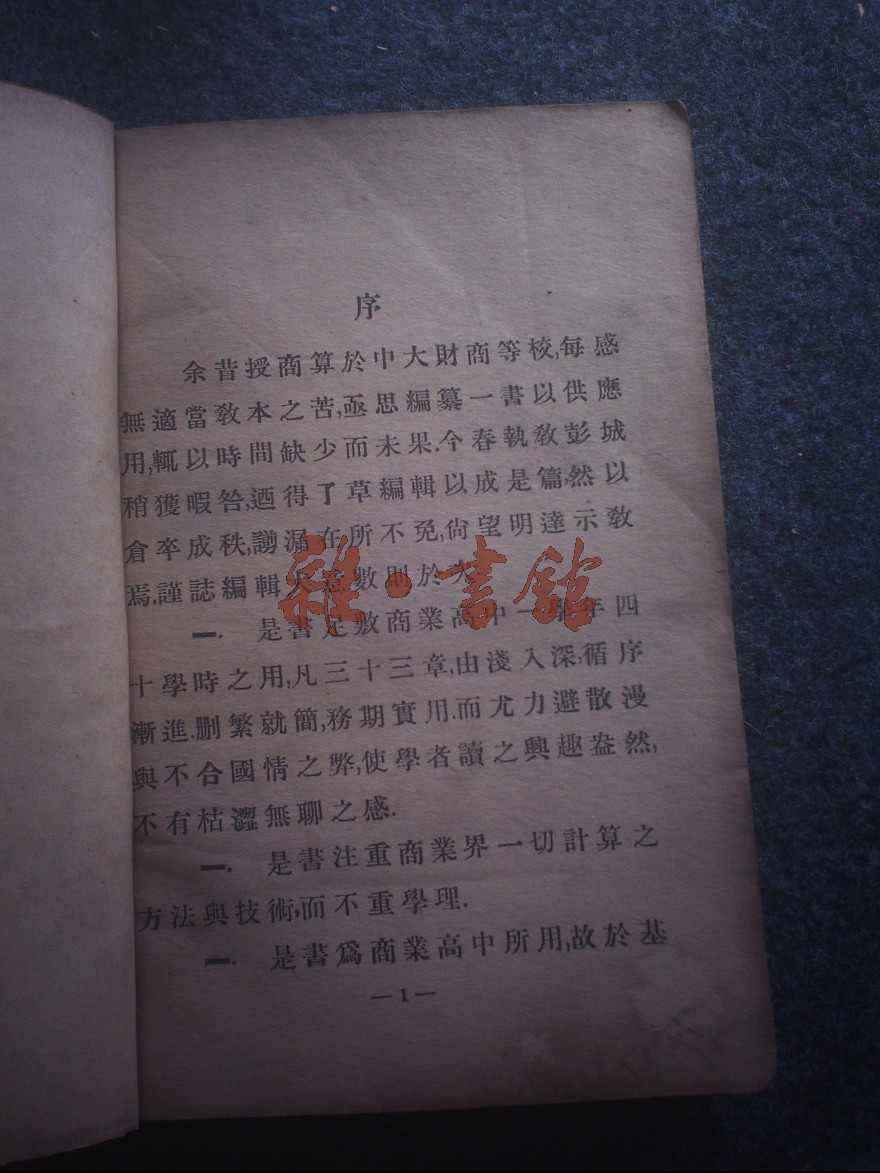 序
余昔授商算於中大財商等校,每感
無適當敎本之苦,亟思編纂一書以供應
用,輒以時間缺少而未果.今春執敎彭城
稍獲暇咎,迺得了草編輯以成是篇,然以
倉卒成秩,謭漏在所不免,尙望明達示敎
焉.謹誌編輯大意數則於
一. 是書足敷商業高中一學年四
十學時之用,凡三十三章,由淺入深,循序
漸進.删繁就簡,務期實用.而尤力避散漫
與不合國情之弊,使學者讀之興趣盎然,
不有枯澀無聊之感.
一. 是書注重商業界一切計算之
方法與技術,而不重學理.
一. 是書爲商業高中所用,故於基
—1—
雜·書館